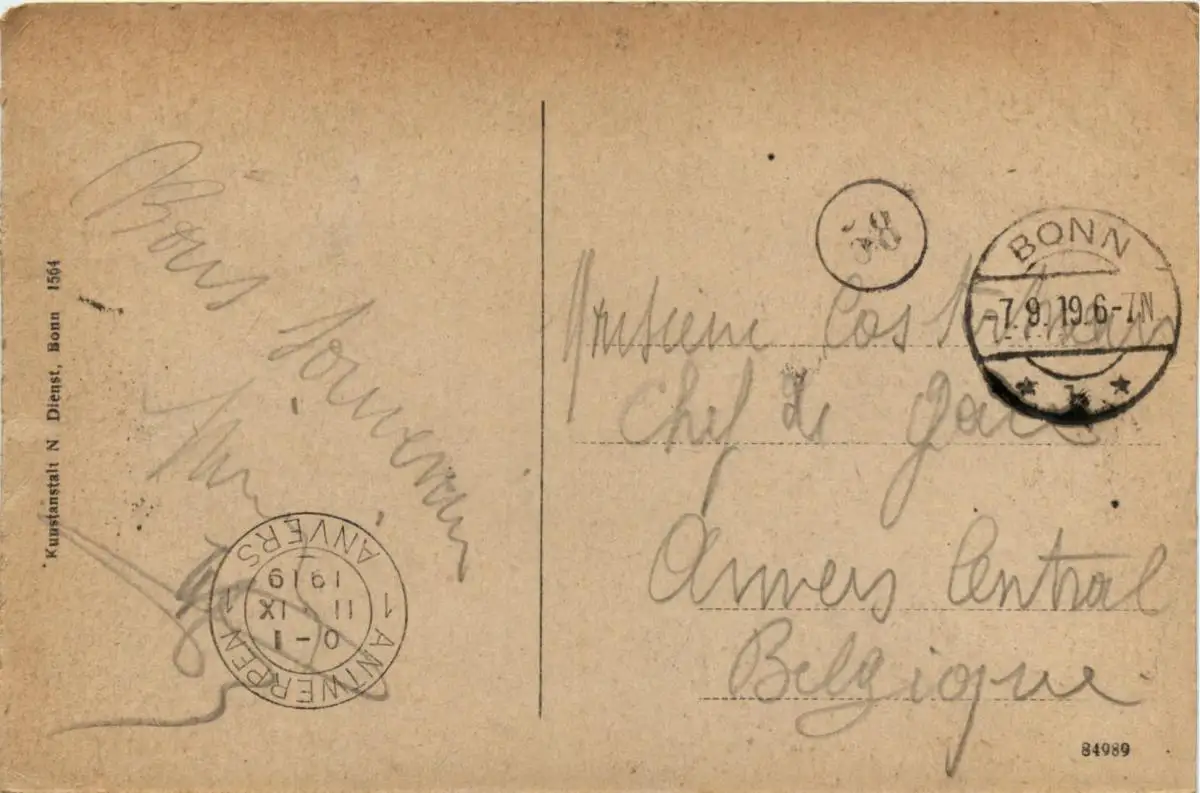 Kunstanstalt N Dienst, Bonn 1564
Bons
Souvenirs
38
BONN
-7.9.19.6-7N
* 1 *
Monsieur
Chef de gare
Anvers Central
Belgique
1 ANTWERPEN 1 ANVERS
0-1
11.IX
1919
84989